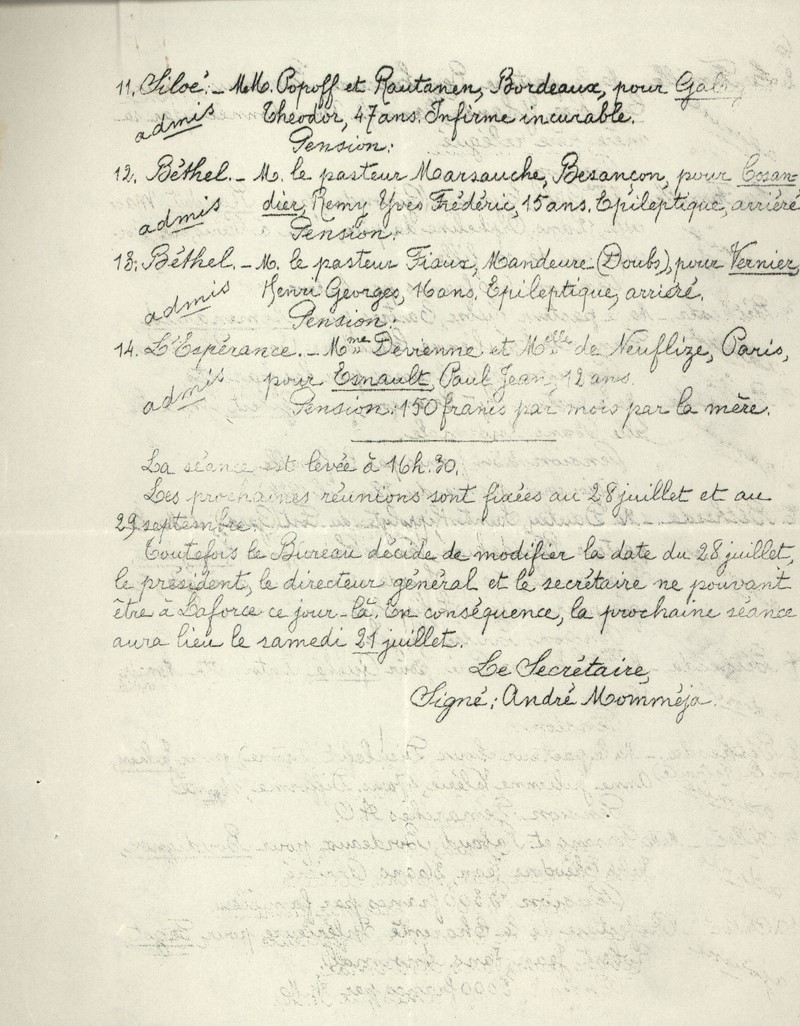 11. Siloé. - MM. Popoff et Rautanen, Bordeaux, pour
admis Theodor, 47 ans. Infirme incurable.
Pension:
12. Béthel. - M. le pasteur Marsauche, Besançon, pour Cosan-
admis dier, Remy Yves Frédéric, 15 ans. Epileptique, arriéré
Pension:
13. Béthel. - M. le pasteur Fiaux, Mandeure (Doubs), pour Vernier,
admis Henri Georges, 16 ans. Epileptique, arriéré.
Pension:
14. L'Espérance. - Mme Devienne et Melle de Neuflize, Paris,
admis pour Esnault, Paul Jean, 12 ans.
Pension: 150 francs par mois par la mère.
La séance est levée à 16h.30.
Les prochaines réunions sont fixées au 28 juillet et au
29 septembre.
Toutefois le Bureau décide de modifier la date du 28 juillet,
le président, le directeur général et le secrétaire ne pouvant
être à Laforce ce jour-là. En conséquence, la prochaine séance
aura lieu le samedi 21 juillet.
Le Secrétaire,
Signé: André Momméja.